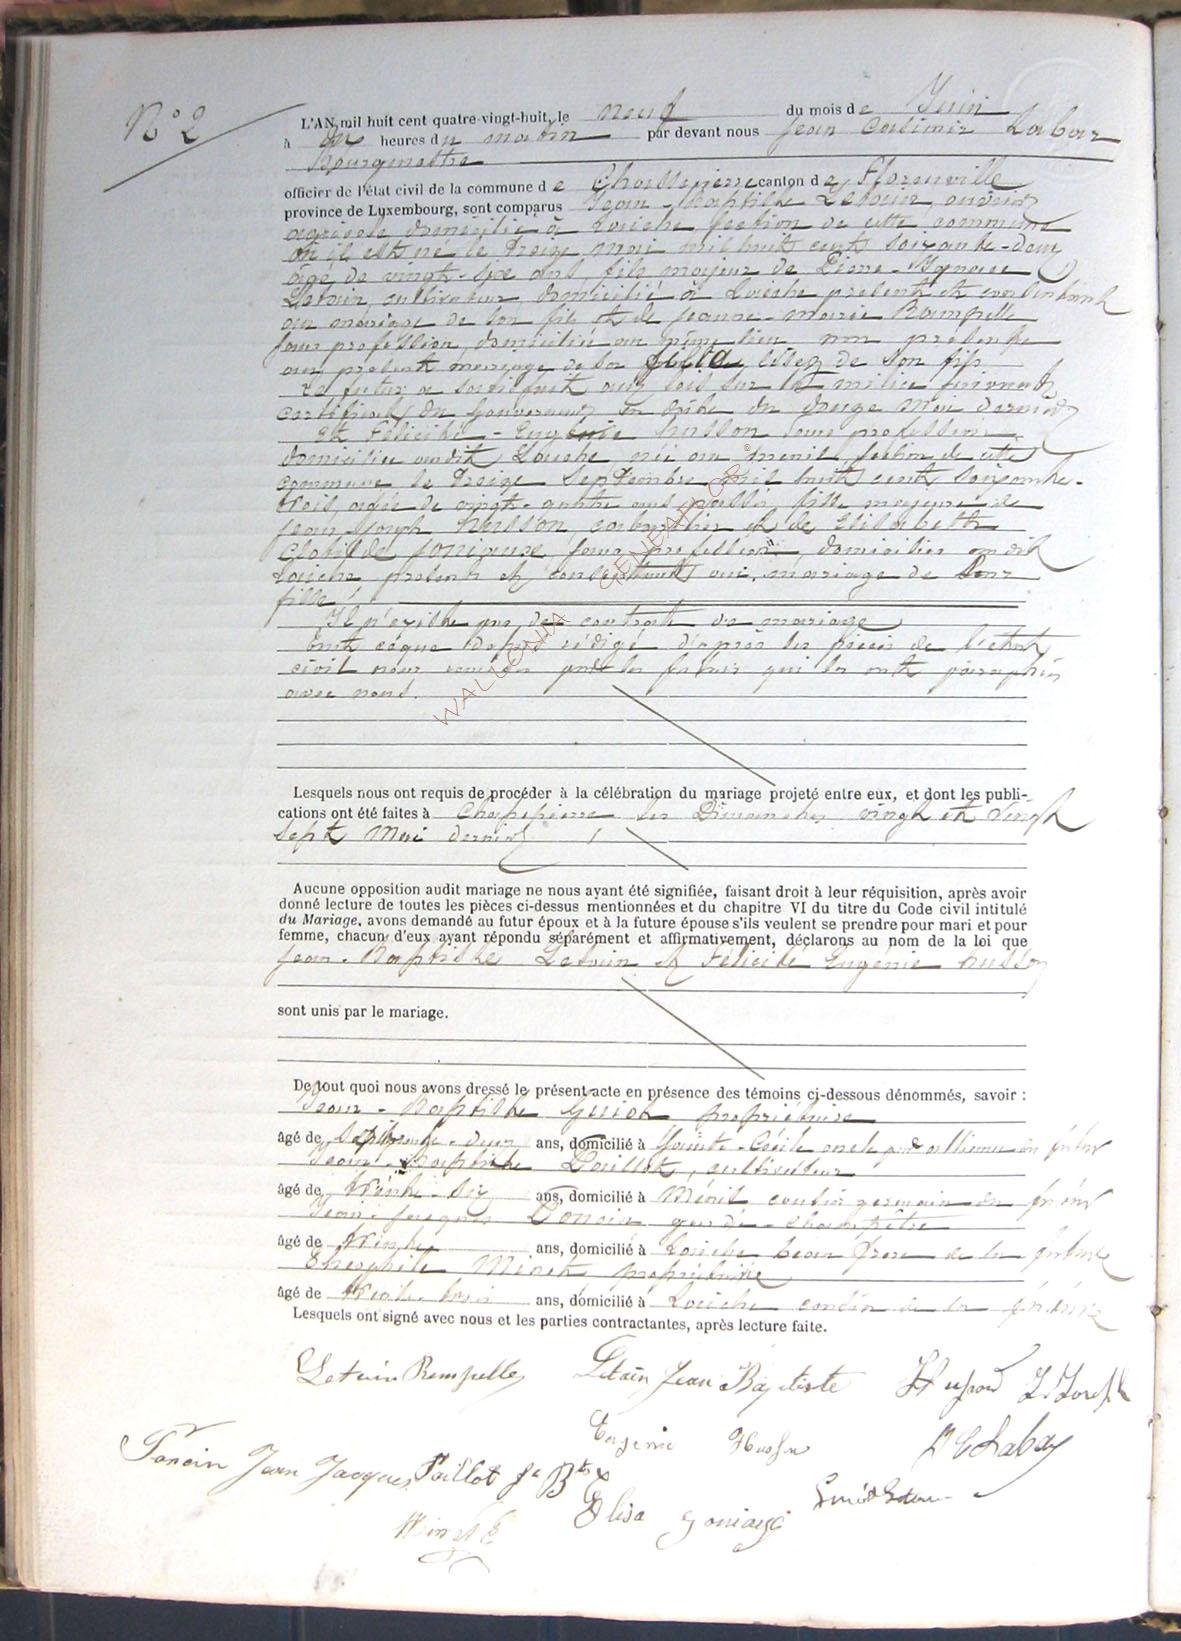 N° 2
L'AN mil huit cent quatre-vingt-huit, le neuf du mois de Juin
à dix heures du matin par devant nous Jean Casimir Labar
Bourgmestre
officier de l'état civil de la commune de Chassepierre canton de Florenville
province de Luxembourg, sont comparus Jean-Baptiste Letoin ouvrier
agricole domicilié à Laiche section de cette commune
où il est né le treize mai mil huit cent soixante-deux
âgé de vingt-six ans, fils majeur de Pierre-Ignace
Letoin, cultivateur, domicilié à Laiche présent et consentant
au mariage de son fils et de Jeanne-Marie Rampelle
sans profession, domiciliée au même lieu non présente
au présent mariage de sa fille lisez de son fils
Le futur a satisfait aux lois sur la milice suivant
certificat du Gouverneur en date du douze Mai dernier
Et Félicité-Eugénie Husson sans profession
domiciliée audit Laiche née au Menil section de cette
commune le treize Septembre mil huit cent soixante-
trois, âgée de vingt-quatre ans passés fille majeure de
Jean Joseph Husson, et de Elisabeth
Clotilde sans profession, domiciliés audit
Laiche présents et consentants au mariage de leur
fille !
Il n'existe pas de contrat de mariage
rédigé d'après les pièces de l'état
civil par les futurs qui les ont paraphées
avec nous.
WALLONIA GENEAFCB ©
Lesquels nous ont requis de procéder à la célébration du mariage projeté entre eux, et dont les publi-
cations ont été faites à Chassepierre les Dimanches vingt et vingt
sept Mai dernier !
Aucune opposition audit mariage ne nous ayant été signifiée, faisant droit à leur réquisition, après avoir
donné lecture de toutes les pièces ci-dessus mentionnées et du chapitre VI du titre du Code civil intitulé
du Mariage, avons demandé au futur époux et à la future épouse s'ils veulent se prendre pour mari et pour
femme, chacun d'eux ayant répondu séparément et affirmativement, déclarons au nom de la loi que
Jean-Baptiste Letoin et Félicité Eugénie Husson
sont unis par le mariage.
De tout quoi nous avons dressé le présent acte en présence des témoins ci-dessous dénommés, savoir :
Jean-Baptiste Guiot propriétaire
âgé de septante-deux ans, domicilié à Sainte-Cécile oncle par alliance du futur
Jean-Baptiste Poillot, cultivateur
âgé de trente-six ans, domicilié à Ménil cousin germain du futur
Jean-Jacques Poncin garde-champêtre
âgé de trente ans, domicilié à Laiche beau frère de la future
Théophile Minet propriétaire
âgé de trente-trois ans, domicilié à Laiche cousin de la future
Lesquels ont signé avec nous et les parties contractantes, après lecture faite.
Letuin Rempelle Letain Jean Baptiste Husson J. Joseph
Eugenie Husson Labar
Poncin Jean Jacques Poillot Jn Bte Elisa
Minet